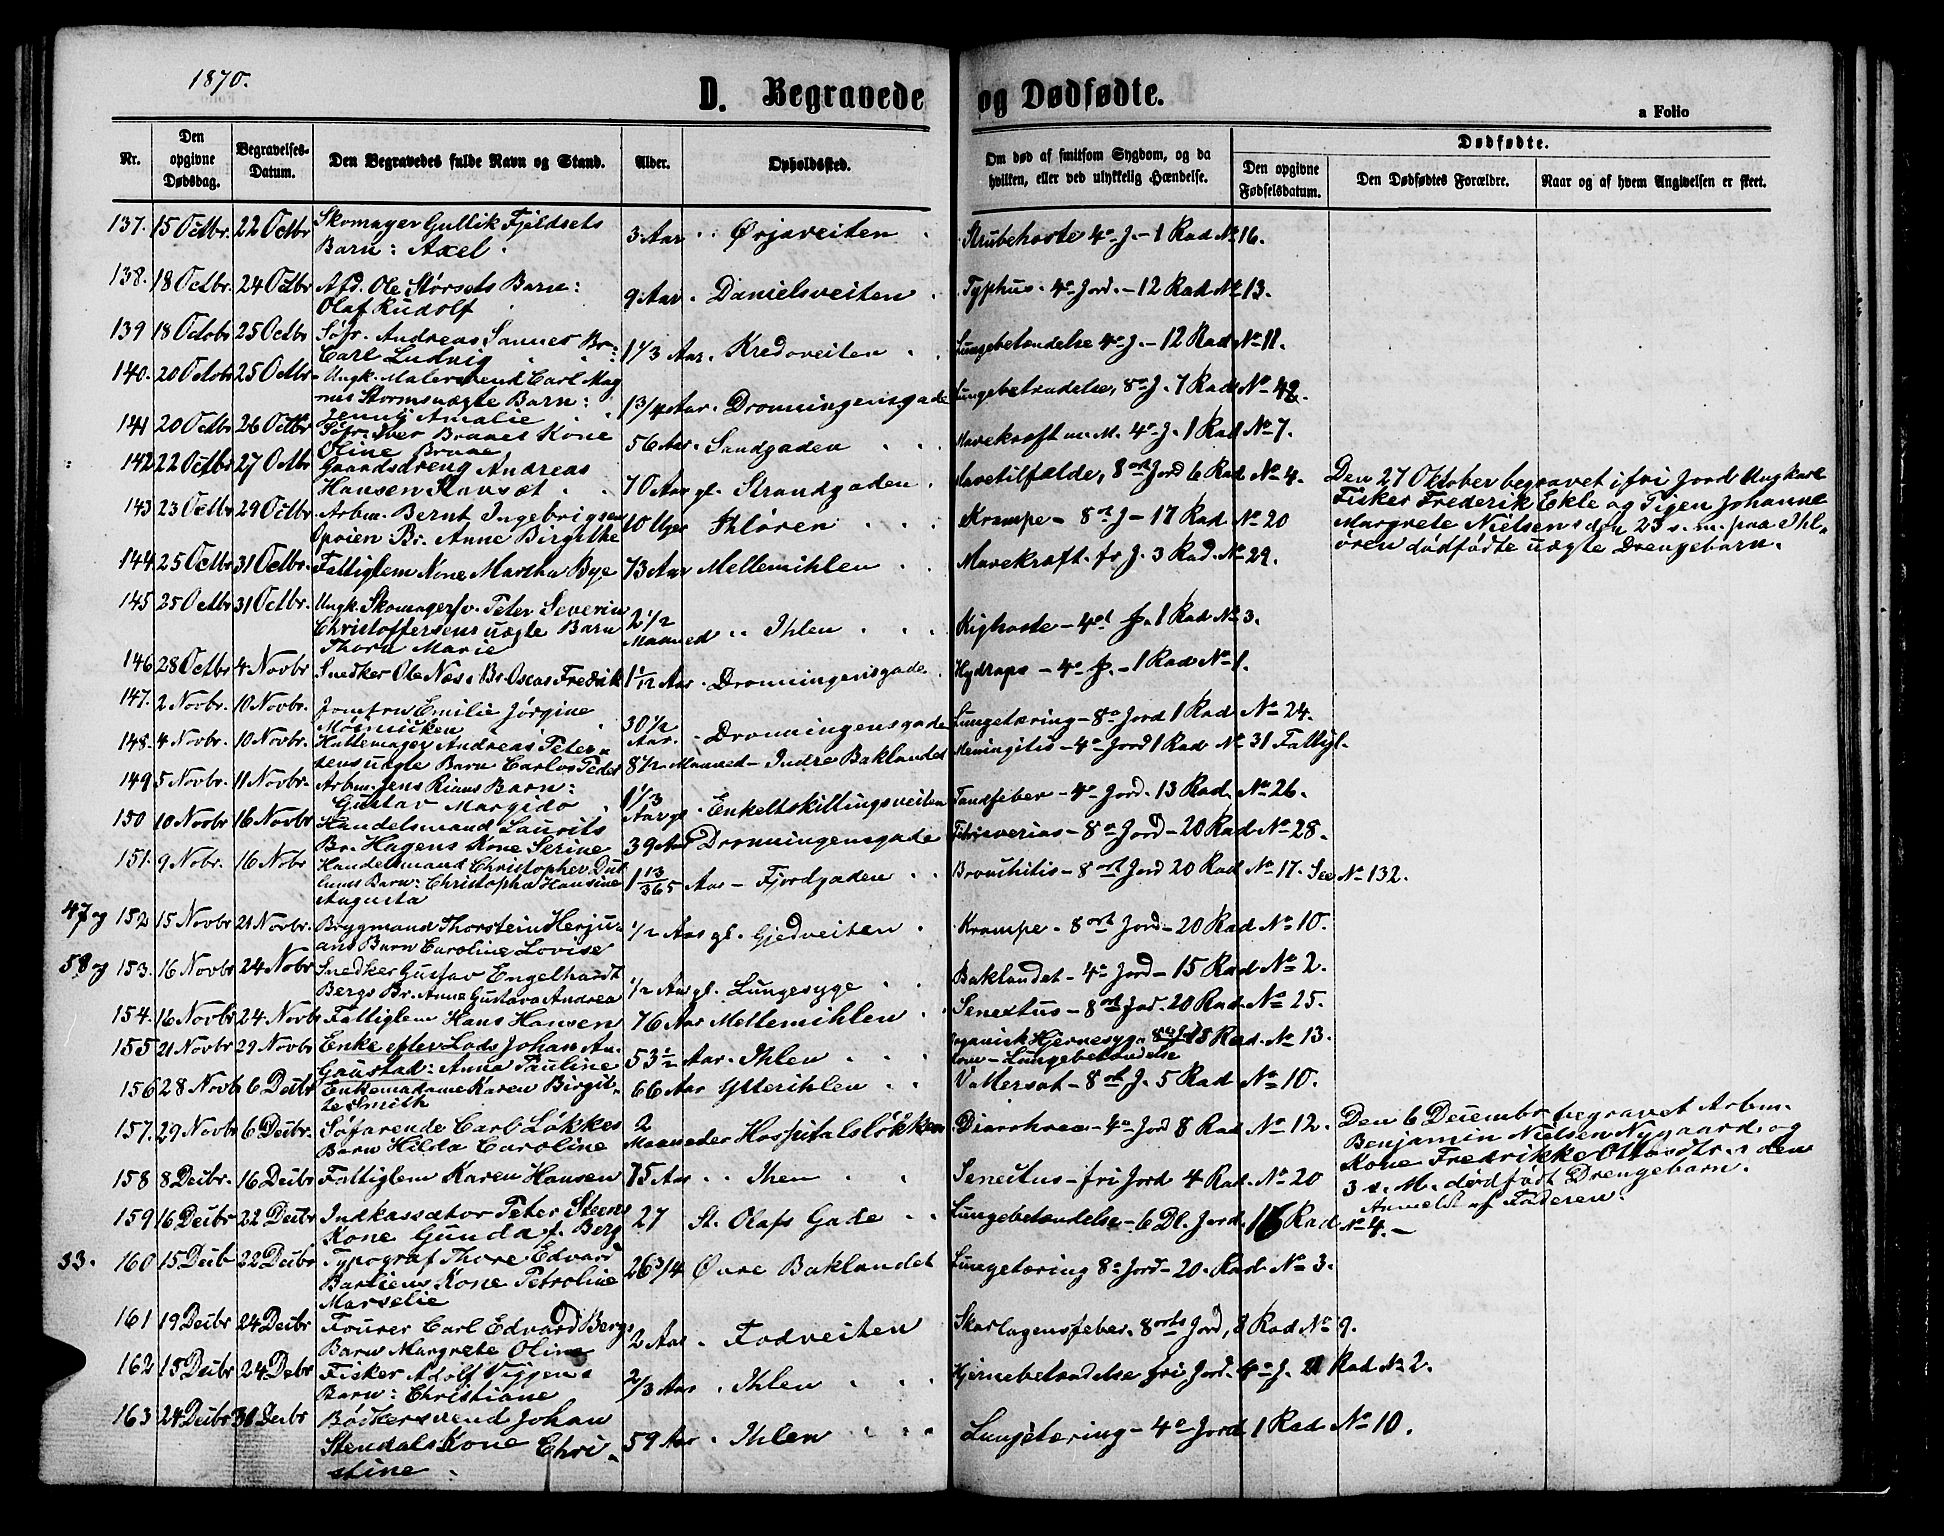 1870.
D. Begravede og Dødfødte.
a Folio
Nr.
Den opgivne Dødsdag.
Begravelses-Datum.
Den Begravedes fulde Navn og Stand.
Alder.
Opholdssted.
Om død af smitsom Sygdom, og da hvilken, eller ved ulykkelig Hændelse.
Dødfødte.
Den opgivne Fødselsdatum.
Den Dødfødtes Forældre.
Naar og af hvem Angivelsen er skeet.
137. 15 Octbr. 22 Octbr Skomager Gullik Fjeldsets
Barn: Axel. 3 Aar Ørjaveiten Strubehoste 4de J. – 1 Rad No 16.
138. 18 Octbr. 24 Octbr Afd. Ole Størsets Barn:
Olaf Rudolf 9 Aar. Danielsveiten. Typhus. 4de Jord. – 12 Rad No 13.
139 18 Octobr 25 Octbr Søfr. Andreas Sannes Br:
Carl Ludvig 1 1/3 Aar. Kredoveiten Lungebetændelse 4de J. – 12 Rad No 11.
140. 20 Octobr 25 Octbr. Ungk. Malersvend Carl Mag
nus Storms uægte Barn:
Jenny Amalie 1 3/4 Aar. Dronningensgade Lungebetændelse, 8de J. 7 Rad No 42.
141 20 Octbr 26 Octbr Søfr. Iver Braaes Kone
Oline Braae 56 Aar. Sandgaden Mavekræft m. M. 4de J. 1 Rad No 7.
142 22 Octbr 27 Octbr Gaardsdreng Andreas
Hansen 70 Aar gl. Strandgaden. Mavetilfælde, 8de Jord 6 Rad No 4.
Den 27 Oktober begravet i fri Jord Ungkarl
Fisker Frederik Ekle og Pigen Johanne
Margrete Nielsens den 23 s. m. paa Ihl-
øren dødfødte uægte Drengebarn.
143 23 Octbr 29 Octbr. Arbm. Bernt Ingebrigsen
Opøien Br. Anne Birgithe 10 Uger Ihløren Krampe – 8de J – 17 Rad No 20
144 25 Octbr 31 Octbr. Fattiglem None Martha Bye 73 Aar Mellemihlen Mavekræft. fr J. 3 Rad. No 29.
145 25 Octbr 31 Octbr. Ungk. Skomagersv. Peter Severin
Christoffersens uægte Barn
Thora Marie 2 1/2 Maaned Ihlen Kighoste – 4de J. 1 Rad No 3.
146 28 Octbr 4 Novbr Snedker Ole Næss Br. Oscar Fredrik 1 1/12 Aar. Dronningensgade. Hydrops – 4de J. – 1 Rad No 1.
147. 2 Novbr. 10 Novbr. Jomfru Emilie Jørgine
Møinicken 30 1/2 Aar. Dronningensgade Lungetæring – 8de Jord 1 Rad No 24.
148. 4 Novbr. 10 Novbr. Hattemager Andreas Peter-
sens uægte Barn Carlos Peder 8 1/2 Maaned – Indre Baklandet Meningitis – 4de Jord 1 Rad No 31 Fattigl.
149 5 Novbr. 11 Novbr. Arbm. Jens Riaus Barn:
Gustav Margido 1 1/3 Aar gl. Enkeltskillingsveiten Tandfeber – 4de Jord. 13 Rad. No 26.
150 10 Novbr 16 Novbr Handelsmand Laurits
Br. Hagens Kone Serine 39 Aar Dronningensgade – 8de Jord – 20 Rad No 28.
151. 9 Nobr. 16 Nobr Handelsmand Christopher Dut
lunds Barn: Christopha Hansine
Augusta 1 13/365 Aar – Fjordgaden Bronchitis – 8de Jord 20 Rad No 17. See No 132.
47 og 152 15 Novbr 21 Novbr. Brygmand Thorstein Herju
ans Barn Caroline Lovise 1/2 Aar gl. Gjedveiten. Krampe. 8de Jord – 20 Rad No 10.
58 og 153. 16 Novbr 24 Nobr Snedker Gustav Engelhardt
Bergs Br. Anna Gustava Andrea 1/2 Aar gl. Lungesyge Baklandet – 4de Jord – 15 Rad No 2.
154. 16 Novbr 24 Novb Fattiglem Hans Hansen 76 Aar Mellemihlen Senectus – 8de Jord. 20 Rad No 25.
155 21 Novbr 29 Novbr Enke efter Lods Johan An.
Gaustad: Anna Pauline 53 1/2 Aar. Ihlen organisk Hjernesyg. 8de J. 18 Rad. No 13.
– Lungebetændelse
156 28 Novb 6 Decbr Enkemadame Karen Birgit-
te Smith 66 Aar Ytterihlen Vattersot – 8de J. 5 Rad No 10.
157. 29 Novbr 6 Decbr. Søfarende Carl Løkkes
Barn Hilda Caroline 2 Maaneder Hospitalsløkken Diarrhea – 4de Jord 8 Rad No 12.
Den 6 Decembr begravet Arbm.
Benjamin Nielsen Nygaard og
Kone Fredrikke Ottosdtr.s den
3 s. M. dødfødt Drengebarn.
Anmeldt af Faderen.
158 8 Decbr. 16 Decbr Fattiglem Karen Hansen 75 Aar Ihen Senectus – fri Jord 4 Rad. No 20
159 16 Decbr 22 Decbr Indkassator Peter Steens
Kone Gunda f. Berg 27 St. Olafs Gade Lungebetændelse – 6 Dl. Jord. 16 Rad No 4. –
33. 160 15 Decb 22 Decbr Typograf Thore Edvard
Bartiens Kone Petroline
Marselie 26 3/4 Øvre Baklandet Lungetæring 8de Jord – 20. Rad No 3.
161 19 Decbr 24 Decbr Fourer Carl Edvard Bergs
Barn Margrete Oline 2 Aar. Fadveiten Skarlagensfeber. 8de Jord, 8 Rad No 9.
162 15 Decbr 24 Debr Fisker Adolf Viggens
Barn: Christiane 2/3 Aar. Ihlen Hjernebetændelse fri Jord. 4de J. Rad No 2.
163 24 Decbr 31 Decbr Bødkersvend Johan
Stendals Kone Chri-
stine. 59 Aar. Ihlen Lungetæring – 4de Jord 1 Rad No 10.